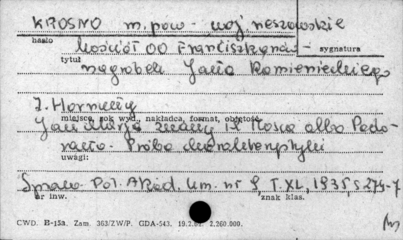 KROSNO m. pow. woj rzeszowskie
hasło
Kościół OO Franciszkanów - sygnatura
tytuł
nagrobek Jana Kamienieckiego
J. Hornung
miejsce, rok wyd., nakładca, format, objętość
Jan Maria zwany il Mosca albo Pado-
vano. Próba charakterystyki
uwagi:
Spraw Pol. Akad. Um. nr 9, T. XL, 1935, s 275-7
nr inw. znak klas.
CWD. B-15a. Zam. 363/ZW/P. GDA-543. 2.260.000.